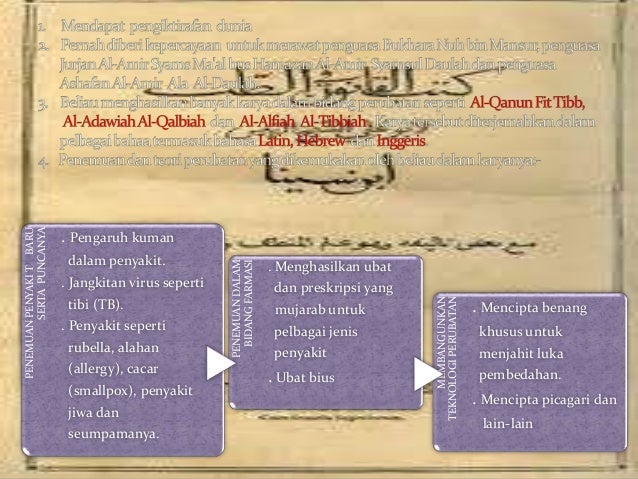 1. Mendapat pengiktirafan dunia
2. Pernah diberi kepercayaan untuk merawat penguasa Bukhara Nuh bin Mansur, penguasa
Jurjan Al-Amir Syams Ma'al bin Hamazan Al-Amir Syamsul Daulah dan penguasa
Ashafan Al-Amir Ala Al-Daulah.
3. Beliau menghasilkan banyak karya dalam bidang perubatan seperti Al-Qanun Fit Tibb,
Al-Adawiah Al-Qalbiah dan Al-Alfiah Al-Tibbiah. Karya tersebut diterjemahkan dalam
pelbagai bahaa termasuk bahasa Latin, Hebrew dan Inggeris
4. Penemuan dan teori perubatan yang dikemukakan oleh beliau dalam karyanya:-
ابو سينا
مع بعض تاليفه وهو علم المنطق
PENEMUAN PENYAKIT BARU
SERTA PUNCANYA
. Pengaruh kuman
dalam penyakit.
. Jangkitan virus seperti
tibi (TB).
. Penyakit seperti
rubella, alahan
(allergy), cacar
(smallpox), penyakit
jiwa dan
seumpamanya.
PENEMUAN DALAM
BIDANG FARMASI
. Menghasilkan ubat
dan preskripsi yang
mujarab untuk
pelbagai jenis
penyakit
. Ubat bius
MEMBANGUNKAN
TEKNOLOGI PERUBATAN
. Mencipta benang
khusus untuk
menjahit luka
pembedahan.
. Mencipta picagari dan
lain-lain